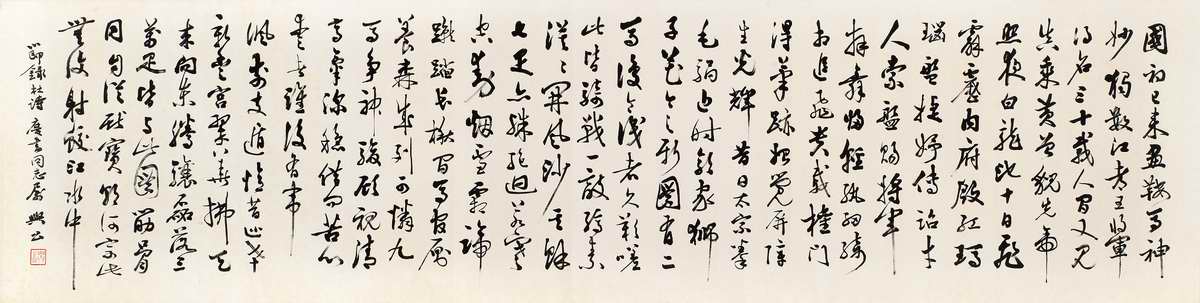 國初已來畫鞍馬神
妙獨數江都王將軍
得名三十載人間又見
真乘黃曾貌先帝
照夜白龍池十日飛
霹靂內府殷紅瑪
瑙盤婕妤傳詔才
人索盤賜將軍
拜舞歸輕紈細綺
相追飛貴戚權門
得筆跡始覺屏障
生光輝昔日太宗拳
毛騧近時郭家獅
子花今之新圖有二
馬復令識者久歎嗟
此皆騎戰一敵縞素
漠漠開風沙其餘
七匹亦殊絕迥若寒
空動煙雪霜蹄
蹴踏長楸間馬官廝
養森成列可憐九
馬爭神駿顧視清
高氣深穩借問苦心
愛者誰後有韋
諷前支遁憶昔巡幸
新豐宮翠華拂天
來向東騰驤磊落三
萬匹皆與此圖筋骨
同自從獻寶朝河宗
無復射蛟江水中
節錄杜詩 慶書同志屬